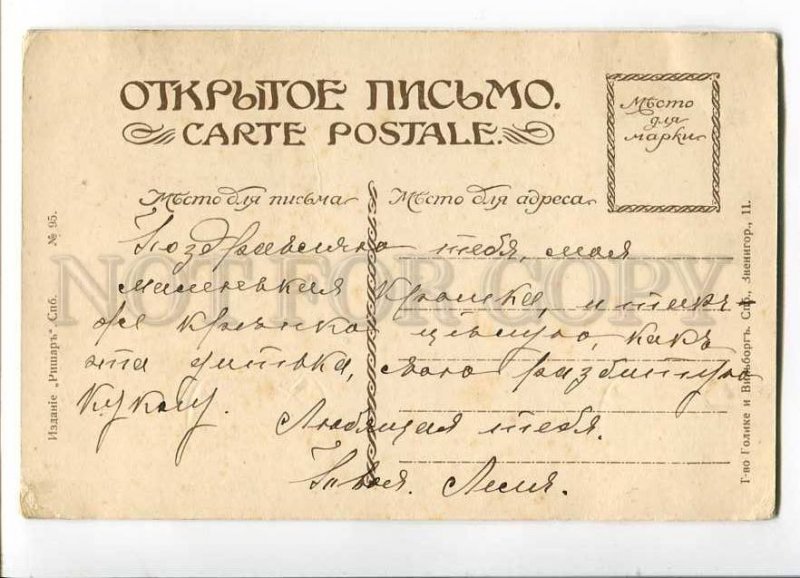 ОТКРЫТОЕ ПИСЬМО.
CARTE POSTALE.
Мѣсто для марки
Мѣсто для письма
Мѣсто для адреса
Поздравляю тебя, моя
маленькая крошка, и такъ
же крѣпко цѣлую, какъ
эта дитька, свою разбитую
куклу. Любящая тебя.
Твоя Леля.
Изданіе „Ришаръ" Спб. № 95.
Т-во Голике и Вильборгъ. Спб., Звенигор., 11.
NOT FOR COPY